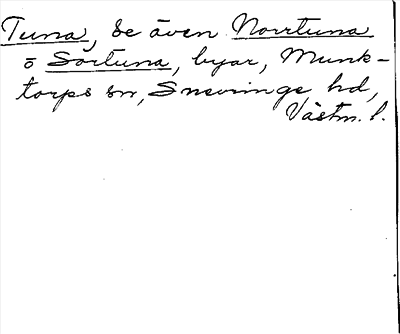 Tuna, se även Norrtuna
o Sörtuna, byar, Munk-
torps sn, Snevringe hd,
Västm. l.